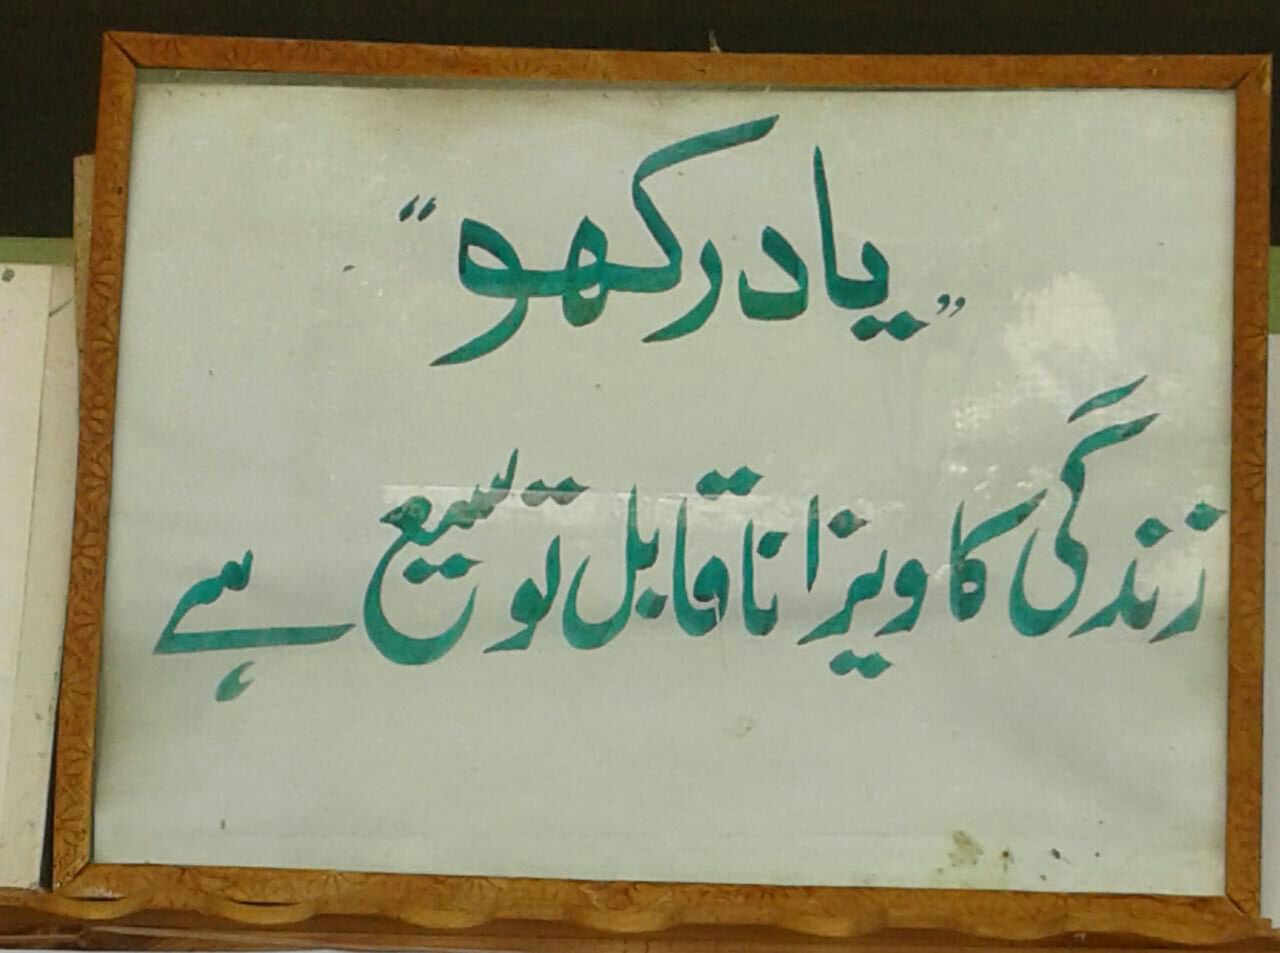 ”یاد رکھو“
زندگی کا ویزا ناقابل توسیع ہے